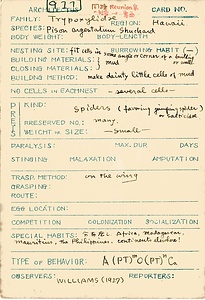 ARCHITECT CARD NO.
921
Reunion
FAMILY: Trypoxylidae REGION: Hawaii
SPECIES: Pison argentatum Shuckard
BODY WEIGHT: BODY-LENGTH
NESTING SITE: fit cells in some angle or corner of a building or wall BURROWING HABIT (—)
BUILDING MATERIALS: mud
CLOSING MATERIALS:
BUILDING METHOD: make dainty little cells of mud
NO CELLS IN EACH NEST — several cells —
PREY
KIND: Spiders (favoring jumping spiders)
PRESERVED NO.: many.
WEIGHT OR SIZE: — small —
PARALYSIS: MAX. DUR DAYS
STINGING MALAXATION AMPUTATION
TRASP. METHOD: on the wing
GRASPING:
ROUTE:
EGG LOCATION:
COMPETITION COLONIZATION SOCIALIZATION
SPECIAL HABITS: Africa, Madagascar,
Mauritius, the Philippines,
TYPE OF BEHAVIOR: A (PT)ᵐ O (PT)ⁿ C
OBSERVERS: WILLIAMS (1927) REPORTERS: